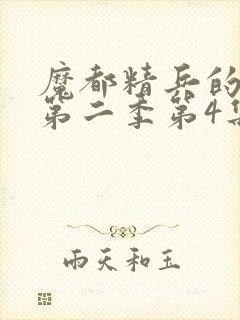 魔都精兵的
第二季第4集
雨天和玉